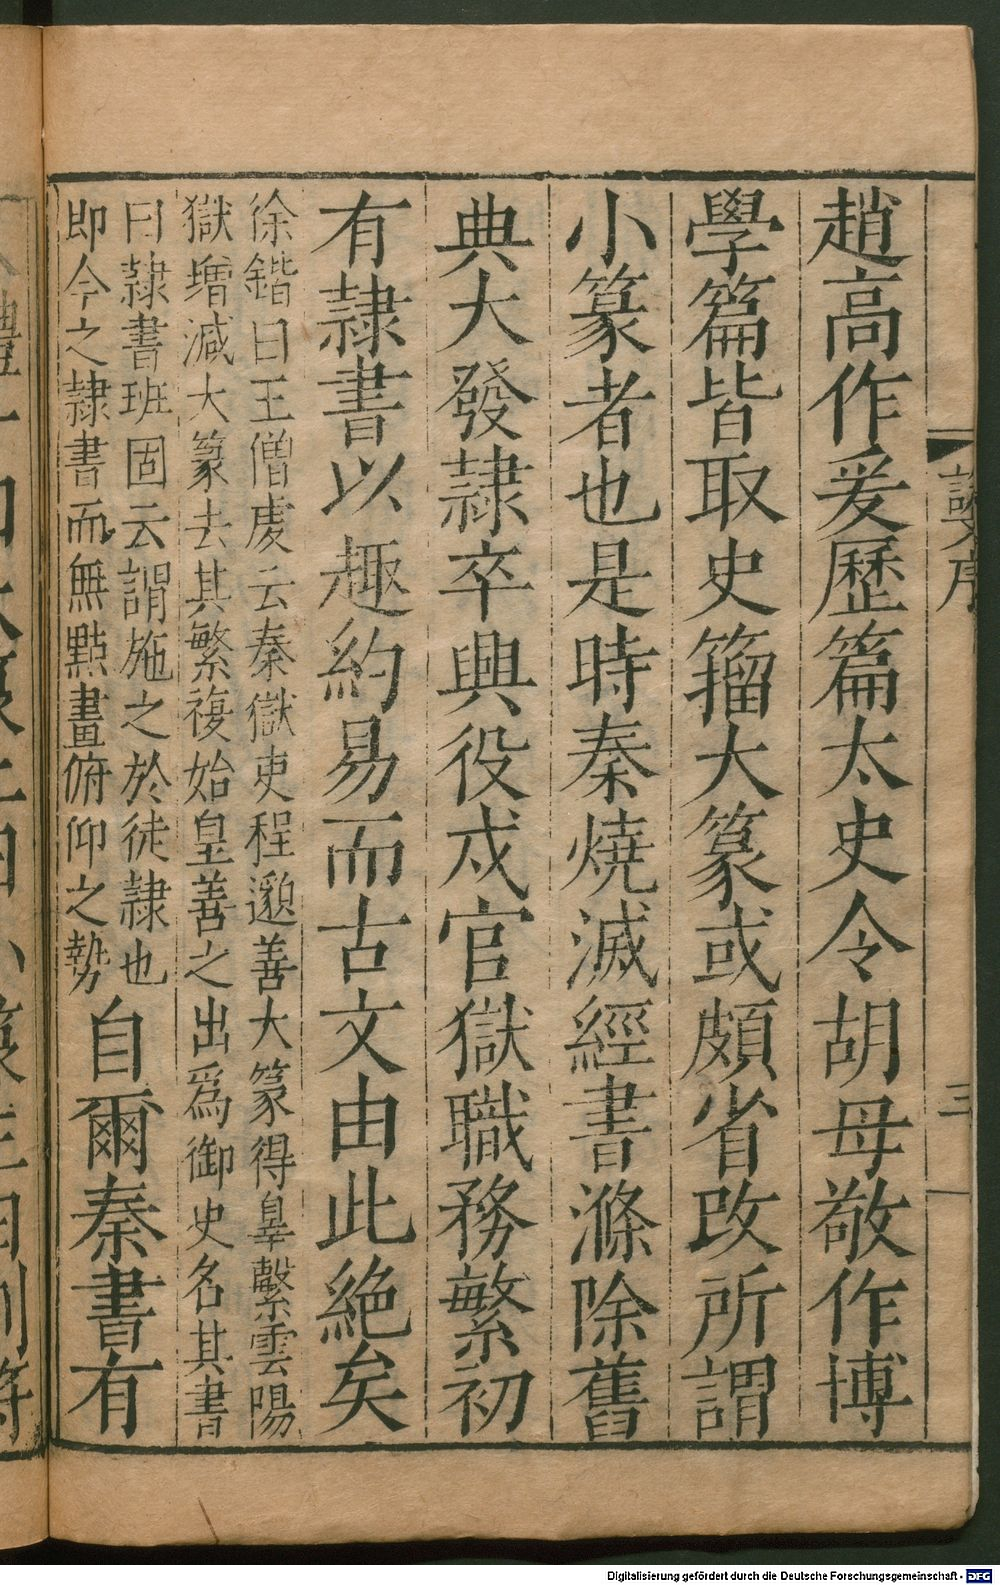 趙高作爰歷篇太史令胡母敬作博
學篇皆取史籀大篆或頗省改所謂
小篆者也是時秦燒滅經書滌除舊
典大發隸卒興役戍官獄職務繁初
有隸書以趣約易而古文由此絕矣
徐鍇曰王僧虔云秦獄吏程邈善大篆得辠繫雲陽
獄增減大篆去其繁複始皇善之出爲御史名其書
曰隸書班固云謂施之於徒隸也
即今之隸書而無點畫俯仰之勢
自爾秦書有
三
Digitalisierung gefördert durch die Deutsche Forschungsgemeinschaft - DFG